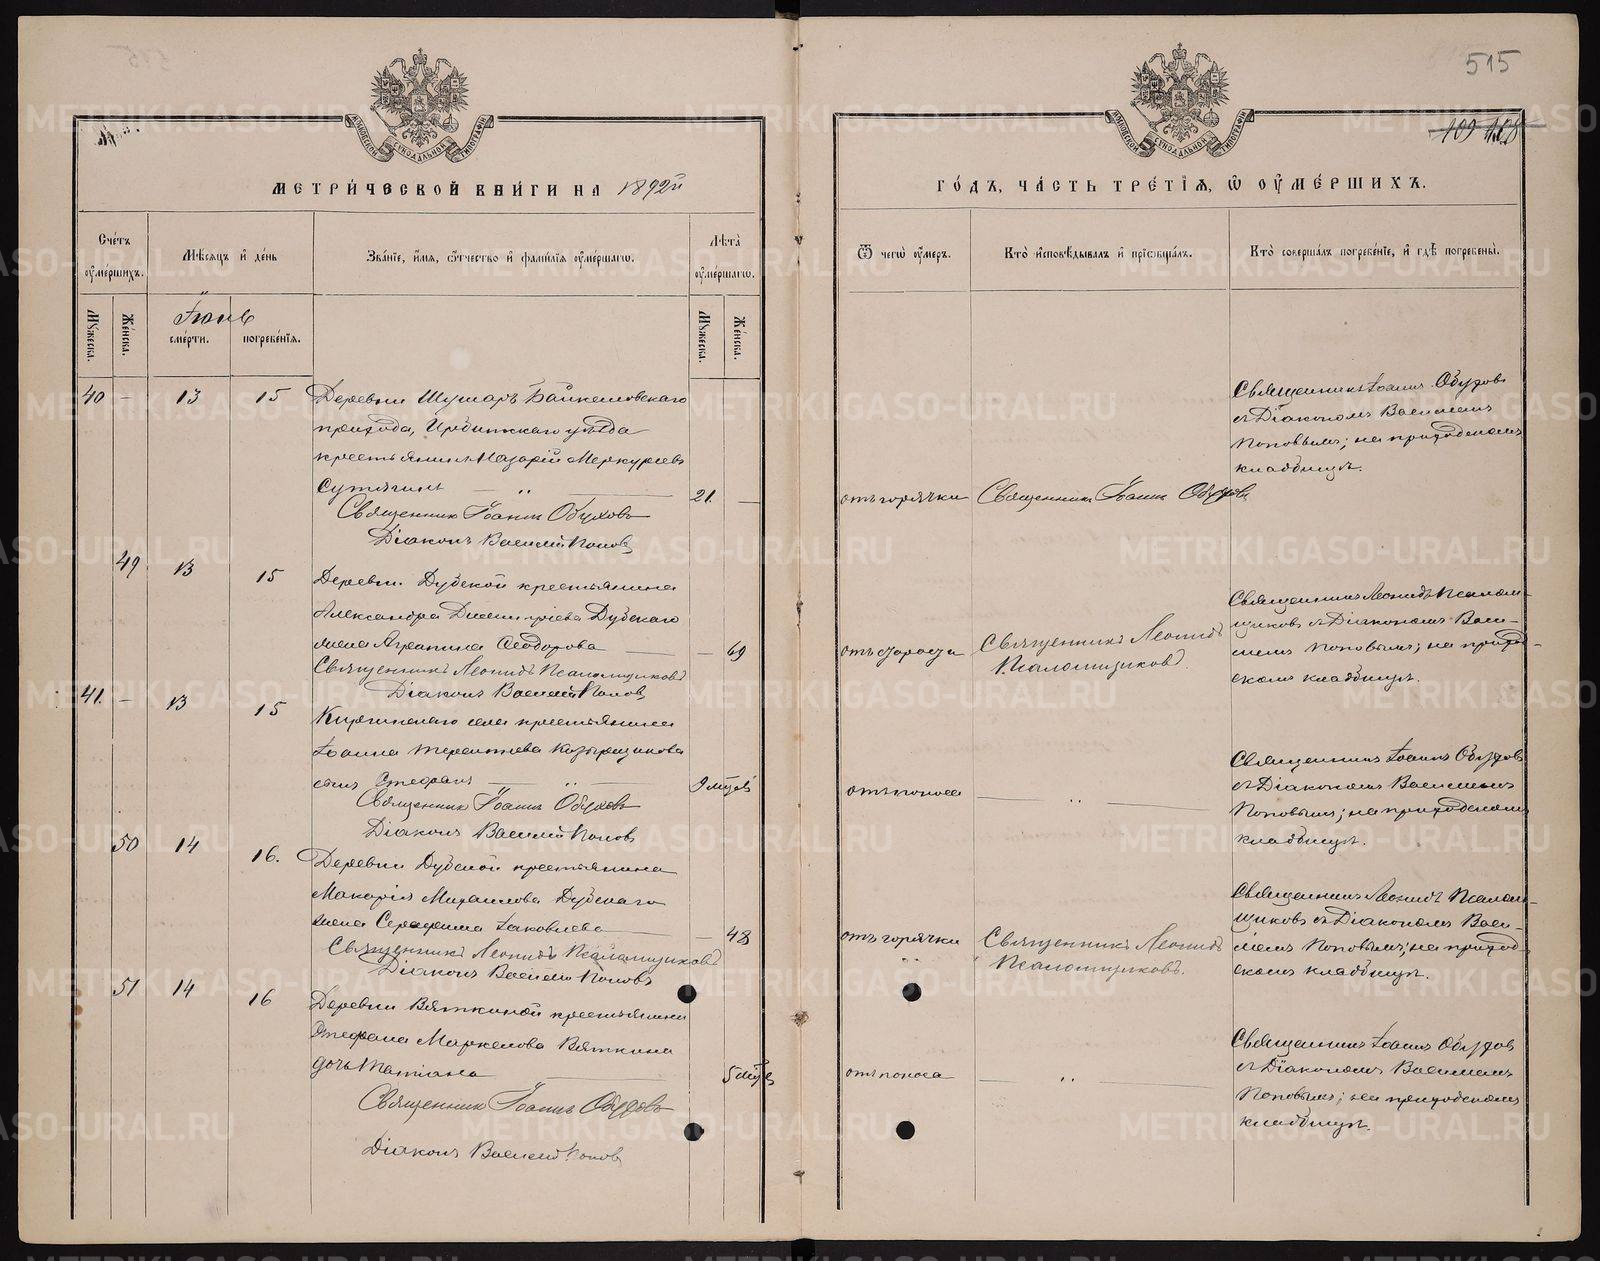 515
109 108
МЕТРИ́ЧЕСКОЙ КНИ́ГИ НА 1892й
ГО́ДЪ, ЧА́СТЬ ТРЕ́ТІѦ, Ѽ ОУ҆МЕ́РШИХЪ.
Сче́тъ оу҆ме́ршихъ.
Мѣ́сѧцъ и҆ де́нь
Зва́ніе, и҆́мѧ, ѻ҆́тчество и҆ фами́лїѧ оу҆ме́ршагѡ.
Лѣ́та оу҆ме́ршагѡ.
Ѿ чегѡ̀ оу҆́меръ.
Кто̀ и҆сповѣ́дывалъ и҆ прїѡбща́лъ.
Кто̀ соверша́лъ погребе́нїе, и҆ гдѣ̀ погребены̀.
Мꙋ́жеска.
Же́нска.
Іюнь
сме́рти.
погребе́нїѧ.
Мꙋ́жеска.
Же́нска.
40 – 13 15 Деревни Шушаръ Байкеловскаго
прихода, Ирбитскаго уѣзда
крестьянинъ Назарій Меркурьевъ
Сутягинъ 21. –
Священникъ Іоаннъ Обуховъ
Діаконъ Василій Поповъ
отъ горячки
Священникъ Іоаннъ Обуховъ
Священникъ Іоаннъ Обуховъ
съ Діакономъ Василіемъ
Поповымъ; на приходскомъ
кладбищѣ.
49 13 15 Деревни Дубской крестьянина
Александра Димитріева Дубскаго
жена Агрипина Ѳеодорова – 69
Священникъ Леонидъ Псаломщиковъ
Діаконъ Василій Поповъ
отъ
Священникъ Леонидъ
Псаломщиковъ.
Священникъ Леонидъ Псалом-
щиковъ съ Діакономъ Васи-
ліемъ Поповымъ; на приход-
скомъ кладбищѣ.
41. – 13 15 Киргинскаго села крестьянина
Іоанна Терентьева Козырщикова
сынъ Стефанъ 9 мцовъ
Священникъ Іоаннъ Обуховъ
Діаконъ Василій Поповъ
отъ поноса
Священникъ Іоаннъ Обуховъ
съ Діакономъ Василіемъ
Поповымъ; на приходскомъ
кладбищѣ.
50 14 16. Деревни Дубской крестьянина
Макарія Михаилова Дубскаго
жена Серафима Іаковлева – 48
Священникъ Леонидъ Псаломщиковъ
Діаконъ Василій Поповъ
отъ горячки
Священникъ Леонидъ
Псаломщиковъ.
Священникъ Леонидъ Псалом-
щиковъ съ Діакономъ Васи-
ліемъ Поповымъ; на приход-
скомъ кладбищѣ.
51 14 16 Деревни Вяткиной крестьянина
Стефана Маркелова Вяткина
дочь Татіана 5 мцъ
Священникъ Іоаннъ Обуховъ
Діаконъ Василій Поповъ
отъ поноса
Священникъ Іоаннъ Обуховъ
съ Діакономъ Василіемъ
Поповымъ; на приходскомъ
кладбищѣ.
METRIKI.GASO-URAL.RU